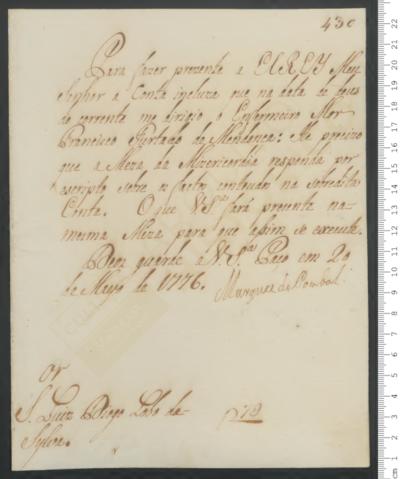 430
Para fazer prezente a ELREY Meu
Senhor a Conta incluza que na data de
do corrente me dirigio o Enfermeiro Mor
Francisco Furtado de Mendoça: He precizo
que a Meza da Mizericordia responda por
escripto sobre os factos contheudos na sobredita
Conta. O que V. S.ª fará prezente na
mesma Meza para que assim se execute.
Deos guarde a V. S.ª Paço em 20
de Mayo de 1776.
Marquez de Pombal
Sr
S. Luiz Diogo Lobo da
Sylva.